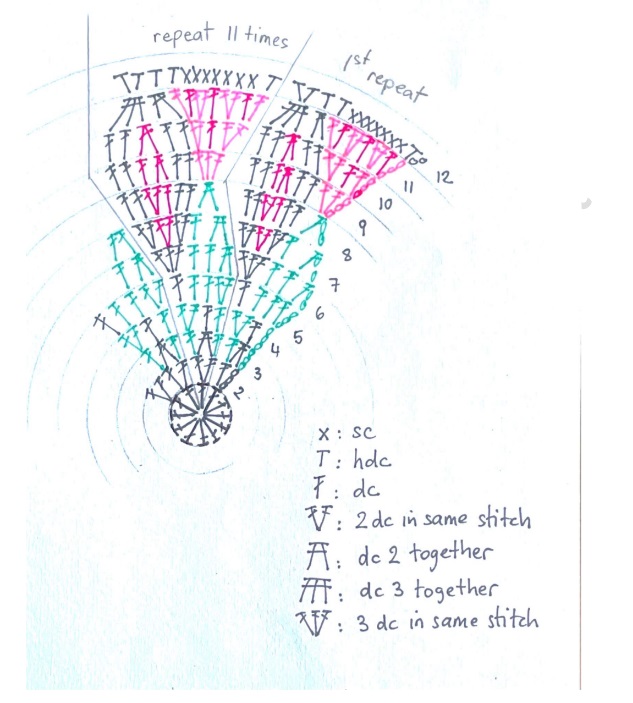 repeat 11 times
1st repeat
12
11
10
9
8
7
6
5
4
3
2
x : sc
T : hdc
Ŧ : dc
: 2 dc in same stitch
: dc 2 together
: dc 3 together
: 3 dc in same stitch